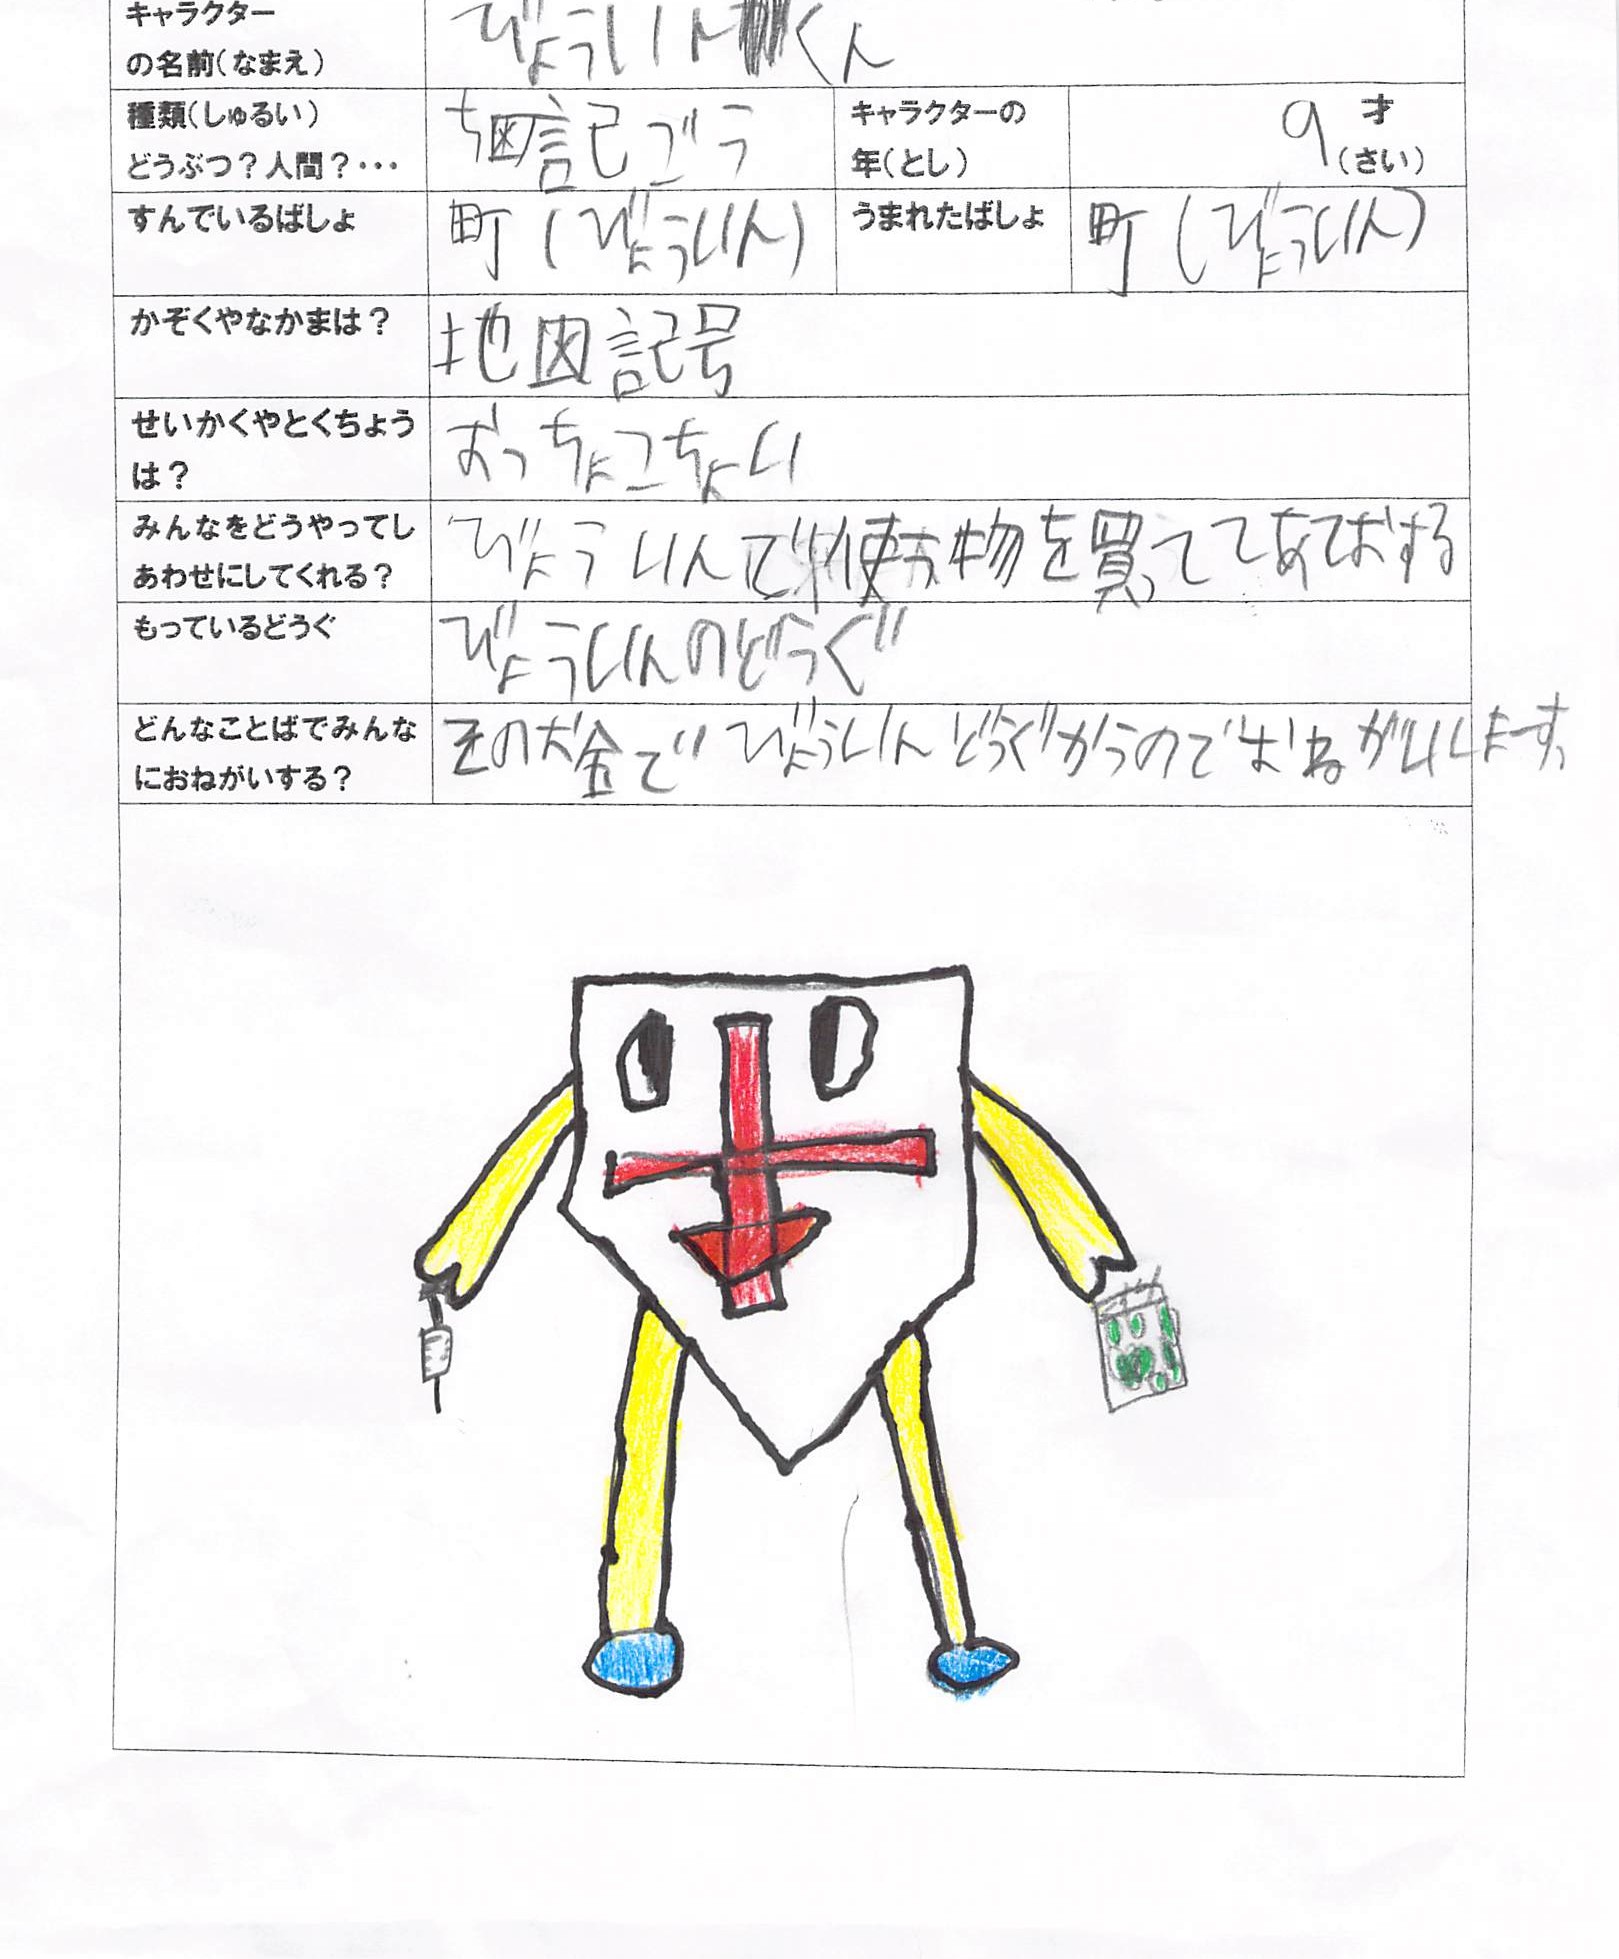 キャラクター
の名前(なまえ)
びょういんくん
種類(しゅるい)
どうぶつ?人間?・・・
ち図記ごう
キャラクターの
年(とし)
9才
(さい)
すんでいるばしょ
町(びょういん)
うまれたばしょ
町(びょういん)
かぞくやなかまは?
地図記号
せいかくやとくちょう
は?
おっちょこちょい
みんなをどうやってし
あわせにしてくれる?
びょういんで使お物を買っててあておする
もっているどうぐ
びょういんのどうぐ
どんなことばでみんな
におねがいする?
そのお金でびょういんどうぐかうのでおねがいします。